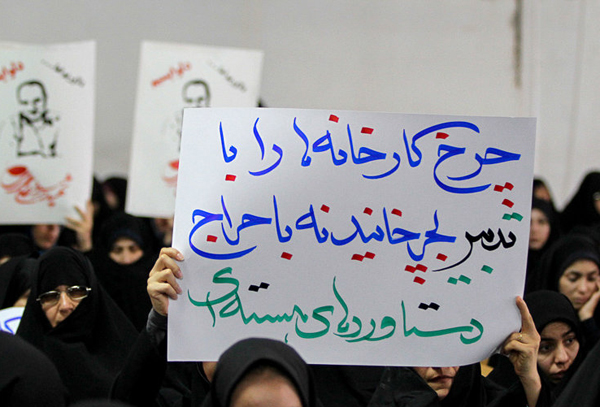 چرخ کارخانه‌ها را با
تدبیر بچرخانید نه با حراج
دستاوردهای هسته‌ای
دلواپسیم